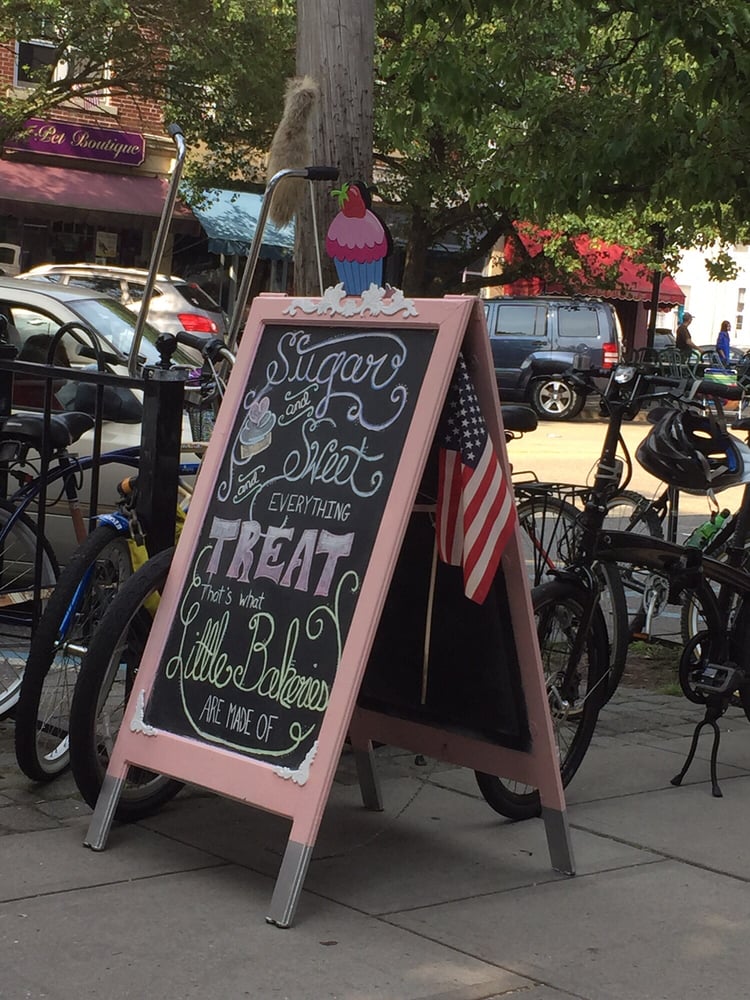 Pet Boutique
Sugar
and
Sweet
and
EVERYTHING
TREAT
That's what
Little Bakeries
ARE MADE OF